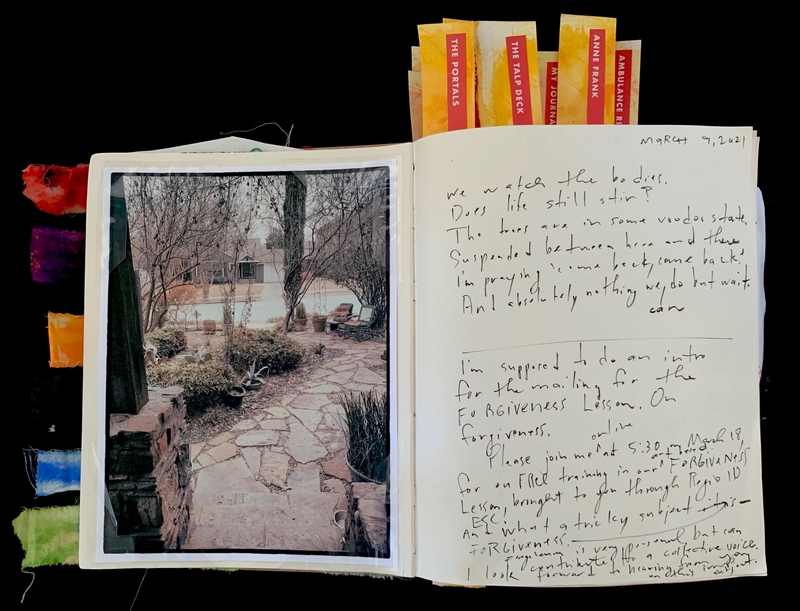 THE PORTALS
THE TALP DECK
MY JOURNA
ANNE FRANK
AMBULANCE RI
MARCH 9, 2021
we watch the bodies.
Does life still stir?
The trees are in some voodoo state.
Suspended between here and there
I'm praying come back, come back!
And absolutely nothing we do but wait.
can
I'm supposed to do an intro
for the mailing for the
FORGIVENESS Lesson. On
forgiveness.
online
Please join me at 5:30 on March 18
for an training in our FORGIVENESS
Lesson, brought to you through Region 10
ESC.
And what a tricky subject this is
FORGIVENESS.
Forgiveness is very personal but can
contribute to a collective voice.
I look forward to hearing from you
on this subject.